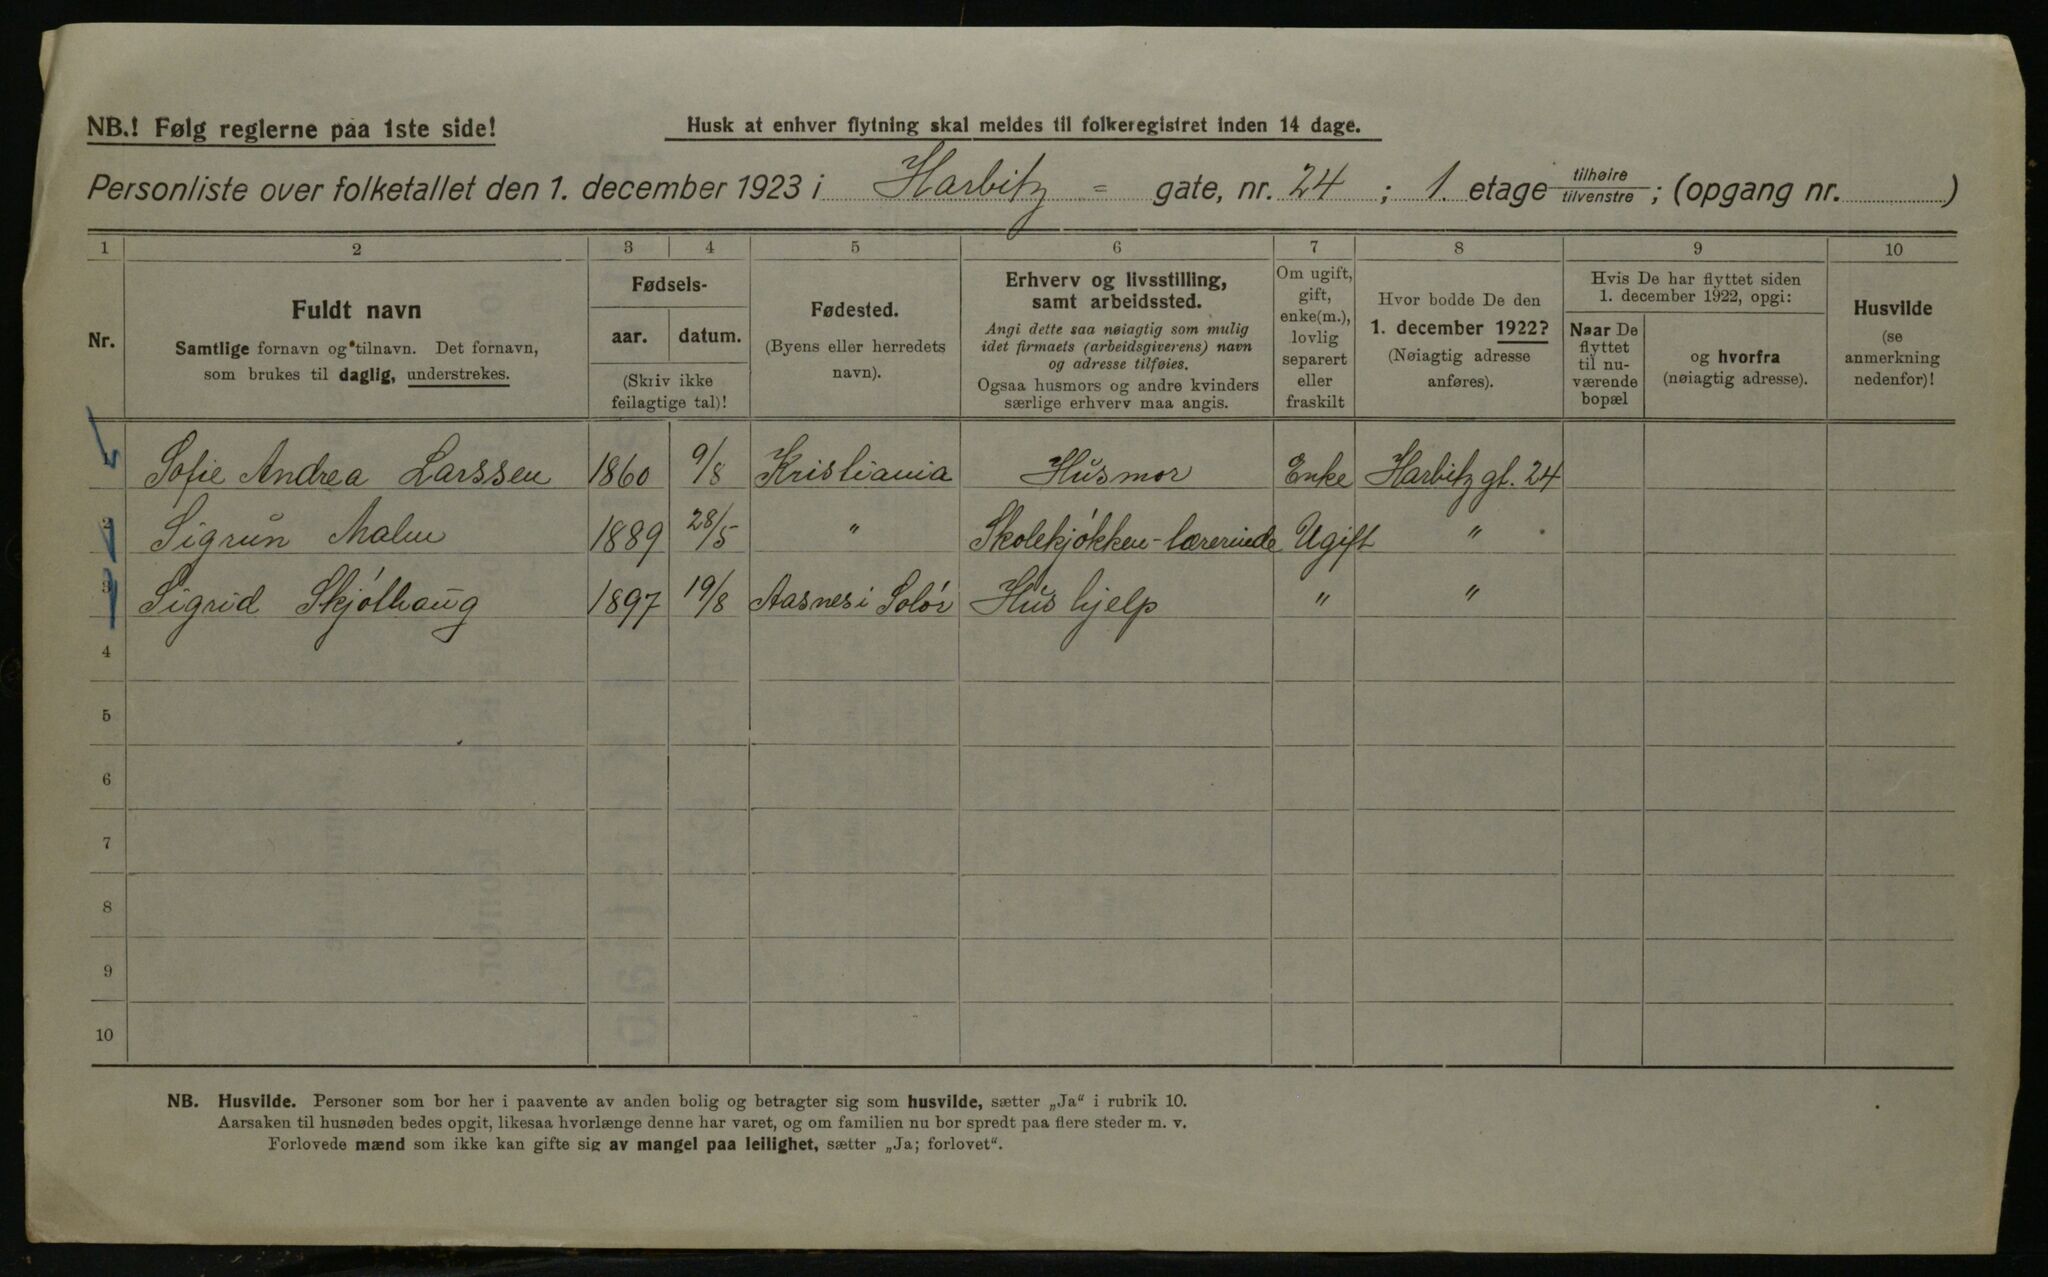 NB.! Følg reglerne paa 1ste side!
Husk at enhver flytning skal meldes til folkeregistret inden 14 dage.
Personliste over folketallet den 1. december 1923 i Harbitz = gate, nr. 24 ; 1. etage tilhøire tilvenstre ; (opgang nr. )
1 2 3 4 5 6 7 8 9 10
Nr.
Fuldt navn
Samtlige fornavn og tilnavn. Det fornavn,
som brukes til daglig, understrekes.
Fødsels-
aar. datum.
(Skriv ikke
feilagtige tal)!
Fødested.
(Byens eller herredets
navn).
Erhverv og livsstilling,
samt arbeidssted.
Angi dette saa nøiagtig som mulig
idet firmaets (arbeidsgiverens) navn
og adresse tilføies.
Ogsaa husmors og andre kvinders
særlige erhverv maa angis.
Om ugift,
gift,
enke(m.),
lovlig
separert
eller
fraskilt
Hvor bodde De den
1. december 1922?
(Nøiagtig adresse
anføres).
Hvis De har flyttet siden
1. december 1922, opgi:
Naar De
flyttet
til nu-
værende
bopæl
og hvorfra
(nøiagtig adresse).
Husvilde
(se
anmerkning
nedenfor)!
1 Sofie Andrea Larssen 1860 9/8 Kristiania Husmor Enke Harbitz gt. 24
2 Sigrun Malm 1889 28/5 " Skolekjøkken-lærerinde Ugift "
3 Sigrid Skjølhaug 1897 19/8 Aasnes i Solør Hushjelp " "
4
5
6
7
8
9
10
NB. Husvilde. Personer som bor her i paavente av anden bolig og betragter sig som husvilde, sætter „Ja“ i rubrik 10.
Aarsaken til husnøden bedes opgit, likesaa hvorlænge denne har varet, og om familien nu bor spredt paa flere steder m. v.
Forlovede mænd som ikke kan gifte sig av mangel paa leilighet, sætter „Ja; forlovet“.